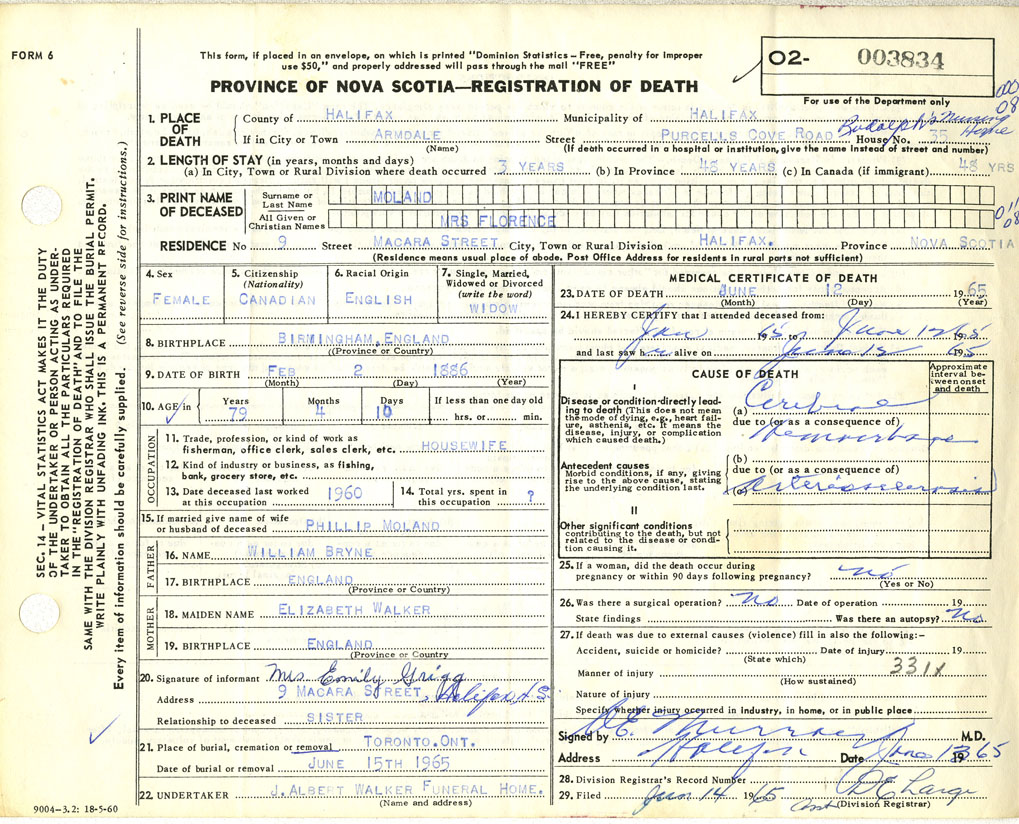 FORM 6
This form, if placed in an envelope, on which is printed "Dominion Statistics – Free, penalty for improper
use $50," and properly addressed will pass through the mail "FREE"
PROVINCE OF NOVA SCOTIA—REGISTRATION OF DEATH
O2- 003834
For use of the Department only
1. PLACE OF DEATH
County of HALIFAX Municipality of HALIFAX
If in City or Town ARMDALE Street PURCELLS COVE ROAD House No. 35
Nursing Home
(Name) (If death occurred in a hospital or institution, give the name instead of street and number)
2. LENGTH OF STAY (in years, months and days)
(a) In City, Town or Rural Division where death occurred 3 YEARS (b) In Province 48 YEARS (c) In Canada (if immigrant) 48 YRS
3. PRINT NAME OF DECEASED
Surname or Last Name MOLAND
All Given or Christian Names MRS FLORENCE
RESIDENCE No 9 Street MACARA STREET City, Town or Rural Division HALIFAX. Province NOVA SCOTIA
(Residence means usual place of abode. Post Office Address for residents in rural parts not sufficient)
4. Sex FEMALE
5. Citizenship (Nationality) CANADIAN
6. Racial Origin ENGLISH
7. Single, Married, Widowed or Divorced (write the word) WIDOW
8. BIRTHPLACE BIRMINGHAM, ENGLAND
(Province or Country)
9. DATE OF BIRTH FEB 2 1886
(Month) (Day) (Year)
10. AGE in Years 79 Months 4 Days 10 If less than one day old hrs. or min.
OCCUPATION
11. Trade, profession, or kind of work as fisherman, office clerk, sales clerk, etc. HOUSEWIFE
12. Kind of industry or business, as fishing, bank, grocery store, etc.
13. Date deceased last worked at this occupation 1960
14. Total yrs. spent in this occupation ?
15. If married give name of wife or husband of deceased PHILLIP MOLAND
FATHER
16. NAME WILLIAM BRYNE
17. BIRTHPLACE ENGLAND
(Province or Country)
MOTHER
18. MAIDEN NAME ELIZABETH WALKER
19. BIRTHPLACE ENGLAND
(Province or Country
20. Signature of informant Mrs. Emily Grigg
Address 9 MACARA STREET, Halifax N.S.
Relationship to deceased SISTER
21. Place of burial, cremation or removal TORONTO. ONT.
Date of burial or removal JUNE 15TH 1965
22. UNDERTAKER J. ALBERT WALKER FUNERAL HOME.
(Name and address)
9004-3.2: 18-5-60
MEDICAL CERTIFICATE OF DEATH
23. DATE OF DEATH JUNE 12 1965
(Month) (Day) (Year)
24. I HEREBY CERTIFY that I attended deceased from:
Jan 1965 to June 12 1965
and last saw her alive on June 12 1965
CAUSE OF DEATH
Approximate interval between onset and death
I
Disease or condition directly leading to death (This does not mean the mode of dying, e.g., heart failure, asthenia, etc. It means the disease, injury, or complication which caused death.)
(a) Cerebral
due to (or as a consequence of)
Hemorrhage
Antecedent causes
Morbid conditions, if any, giving rise to the above cause, stating the underlying condition last.
(b)
due to (or as a consequence of)
(c) Arteriosclerosis
II
Other significant conditions contributing to the death, but not related to the disease or condition causing it.
25. If a woman, did the death occur during pregnancy or within 90 days following pregnancy? No
(Yes or No)
26. Was there a surgical operation? No Date of operation 19
State findings Was there an autopsy? No
27. If death was due to external causes (violence) fill in also the following:–
Accident, suicide or homicide? Date of injury 19
(State which)
Manner of injury 331X
(How sustained)
Nature of injury
Specify whether injury occurred in industry, in home, or in public place
Signed by D E Murray M.D.
Address Halifax Date June 13 1965
28. Division Registrar's Record Number
29. Filed Jun 14 1965
(Division Registrar)
SEC. 14 – VITAL STATISTICS ACT MAKES IT THE DUTY
OF THE UNDERTAKER OR PERSON ACTING AS UNDER-
TAKER TO OBTAIN ALL THE PARTICULARS REQUIRED
IN THE "REGISTRATION OF DEATH" AND TO FILE THE
SAME WITH THE DIVISION REGISTRAR WHO SHALL ISSUE THE BURIAL PERMIT.
WRITE PLAINLY WITH UNFADING INK. THIS IS A PERMANENT RECORD.
Every item of information should be carefully supplied. (See reverse side for instructions.)